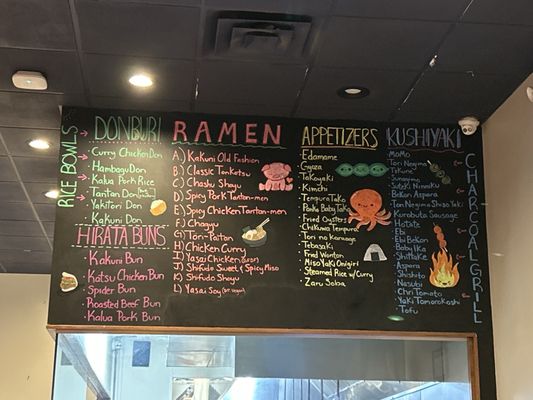 RICE BOWLS
DONBURI
Curry Chicken Don
Hambagu Don
Kalua Pork Rice
Tantan Don
Yakitori Don
Kakuni Don
HIRATA BUNS
Kakuni Bun
Katsu Chicken Bun
Spider Bun
Roasted Beef Bun
Kalua Pork Bun
RAMEN
A.) Kakuni Old Fashion
B) Classic Tonkotsu
C) Chashu Shoyu
D) Spicy Pork Tantan-men
E) Spicy Chicken Tantan-men
F) Chagyu
G) Tori-Paitan
H) Chicken Curry
I) Yasai Chicken
J) Shifudo Sweet & Spicy Miso
K) Shifudo Shoyu
L) Yasai Soy
APPETIZERS
Edamame
Gyoza
Takoyaki
Kimchi
Tempura Tofu
Tempura Ika
Fried Oysters
Chikuwa Tempura
Tori no Karaage
Tebasaki
Fried Wonton
Miso Yaki Onigiri
Steamed Rice w/ Curry
Zaru Soba
KUSHIYAKI
MoMo
Tori Negima
Tskune
Sunagimo
Ninniku
Bekon Aspera
Tontoro
Ton Negima Shiso Yaki
Kurobuta Sausage
Hotate
Ebi
Ebi Bekon
Baby Ika
Shiitake
Aspera
Shishito
Nasubi
Chri Tomato
Yaki Tomorokoshi
Tofu
CHARCOAL GRILL